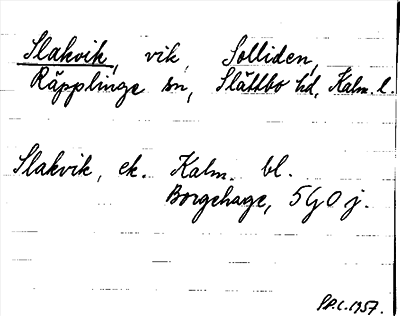 Slakvik, vik, Solliden,
Räpplinge sn, Slättbo hd, Kalm. l.
Slakvik, ek. Kalm. bl.
Borgehage, 5G0j.
P.P.C. 1957.